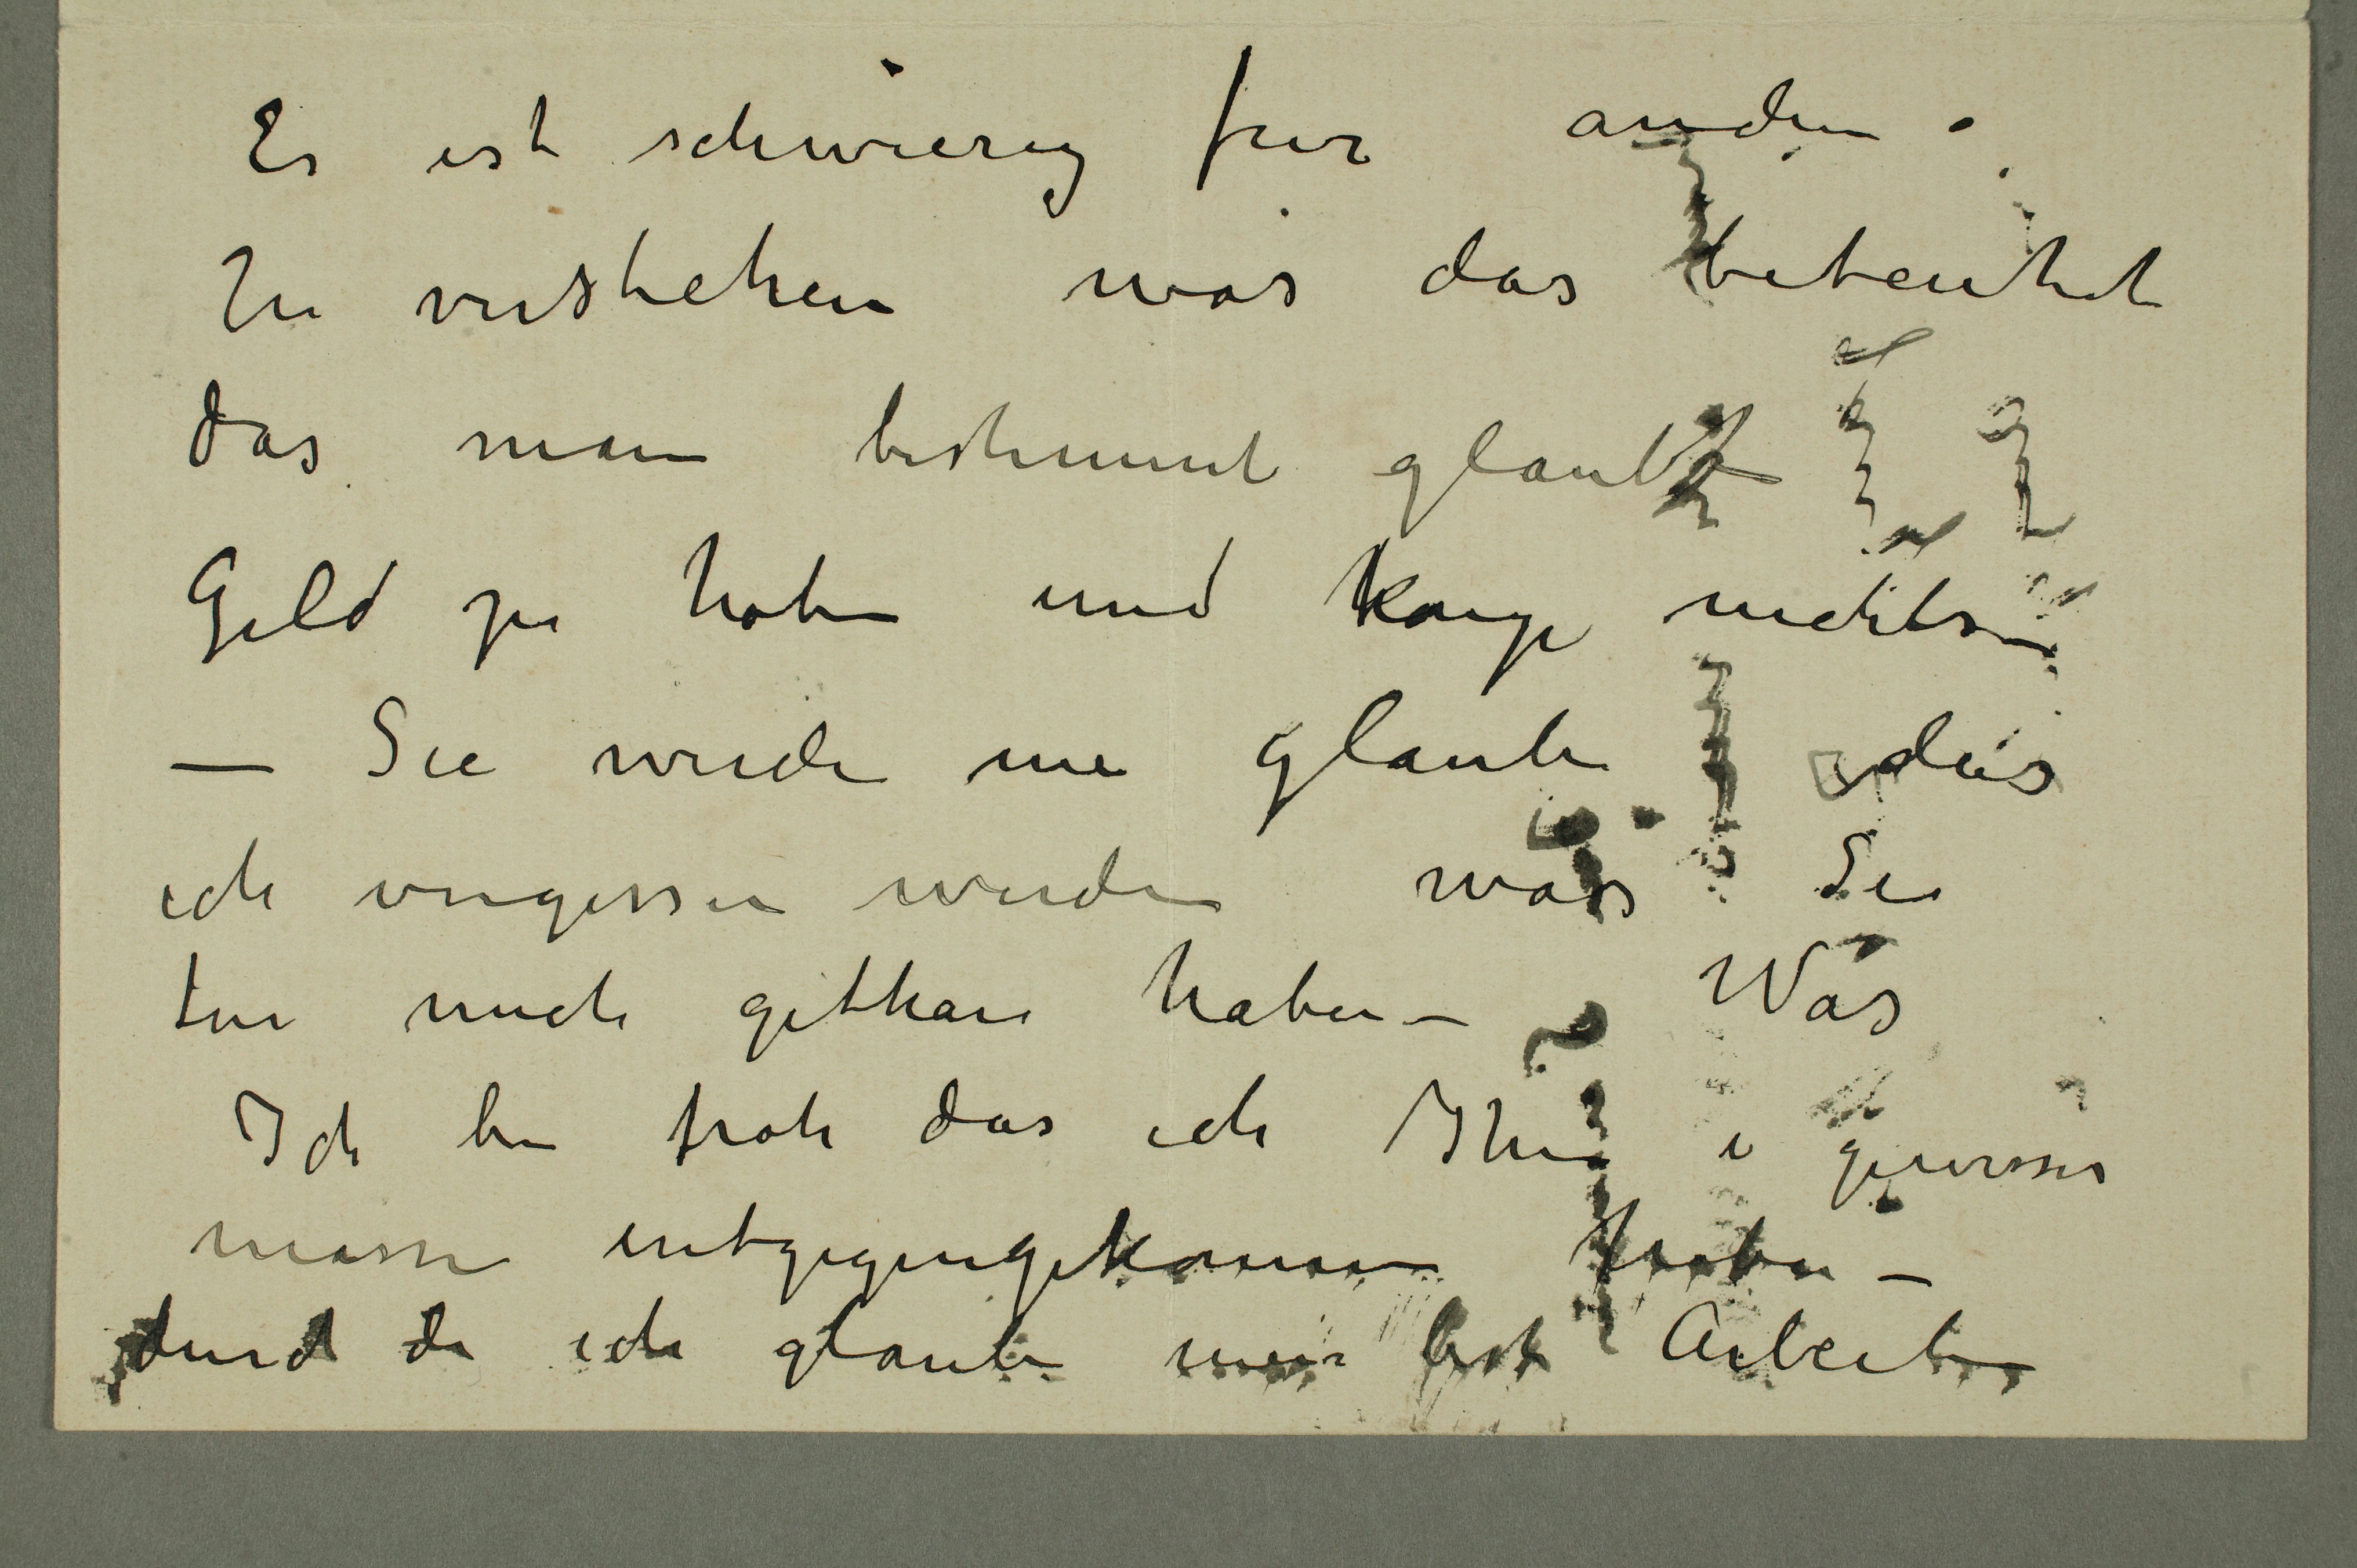 Es ist schwierig für andern
zu verstehen was das beteutet
das man bestimmt glaubt
Geld zu haben und kauge nichts –
– Sie werden nie glauben das
ich vergessen werden was Sie
für mich gethan haben – Was
Ich bin froh das ich Ihnen in gewisser
masse entgegengekommen haben –
durch die ich glaube mein beste Arbeiten